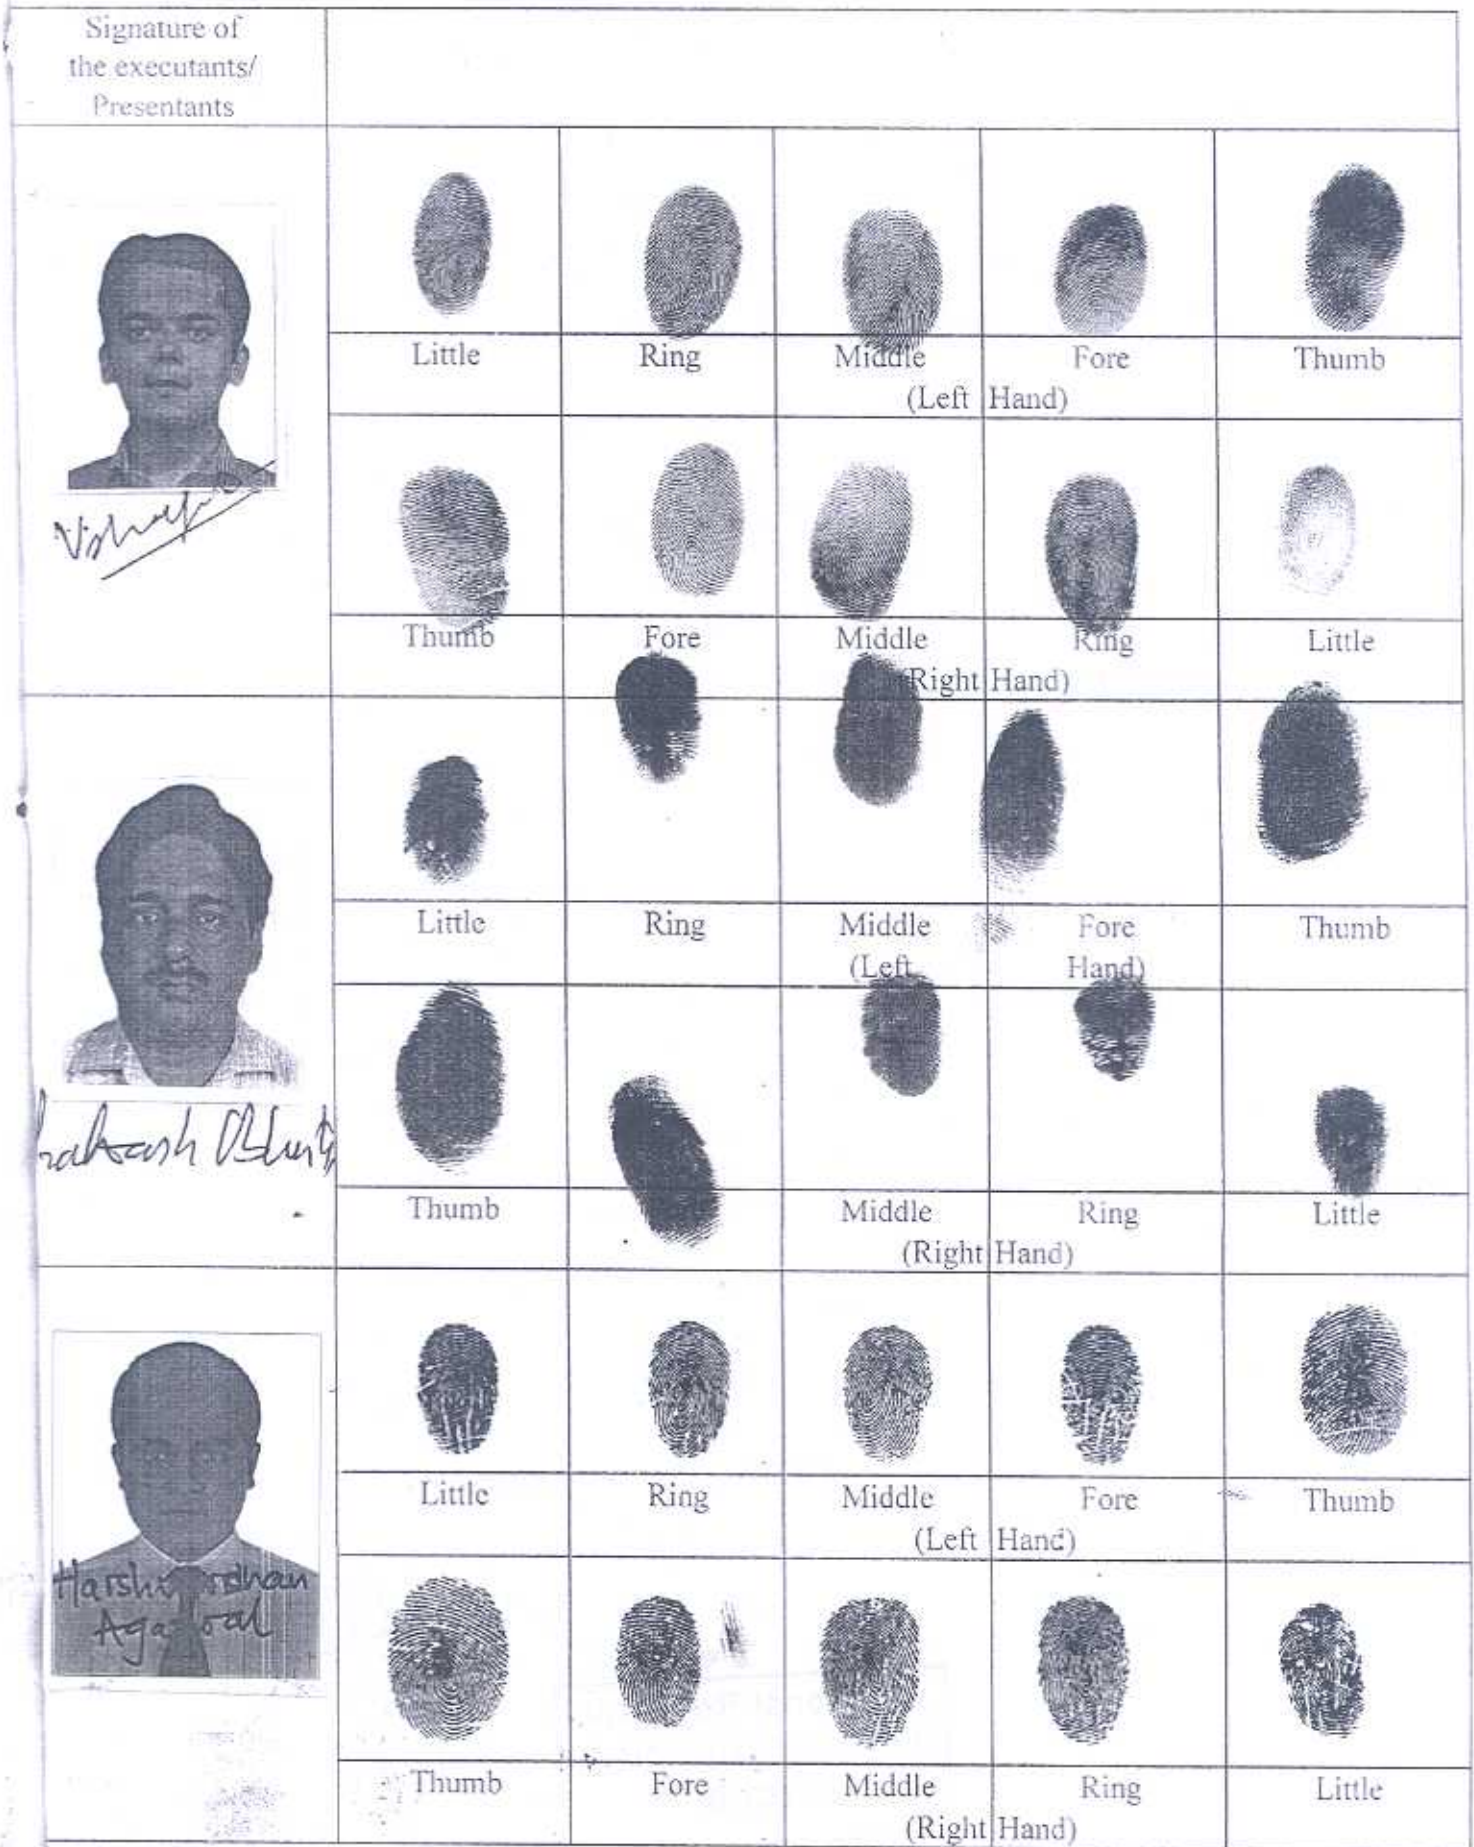 Signature of
the executants/
Presentants
Little Ring Middle Fore Thumb
(Left Hand)
Thumb Fore Middle Ring Little
(Right Hand)
Little Ring Middle Fore Thumb
(Left Hand)
Thumb Middle Ring Little
(Right Hand)
Little Ring Middle Fore Thumb
(Left Hand)
Harshvardhan
Agarwal
Thumb Fore Middle Ring Little
(Right Hand)